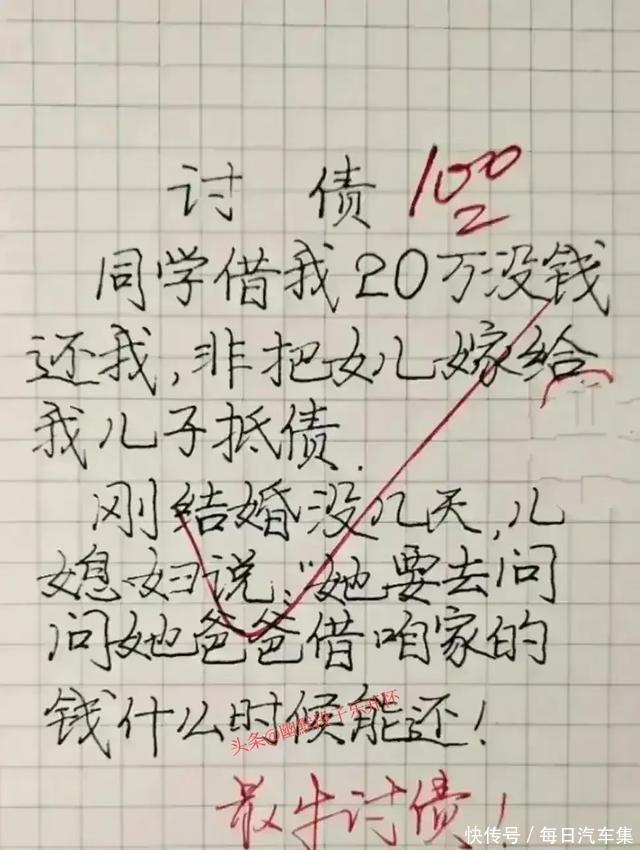 讨债 100
同学借我20万没钱
还我,非把女儿嫁给
我儿子抵债.
刚结婚没几天,儿
媳妇说:“她要去问
问她爸爸借咱家的
钱什么时候能还!
最牛讨债!
快传号/每日汽车集